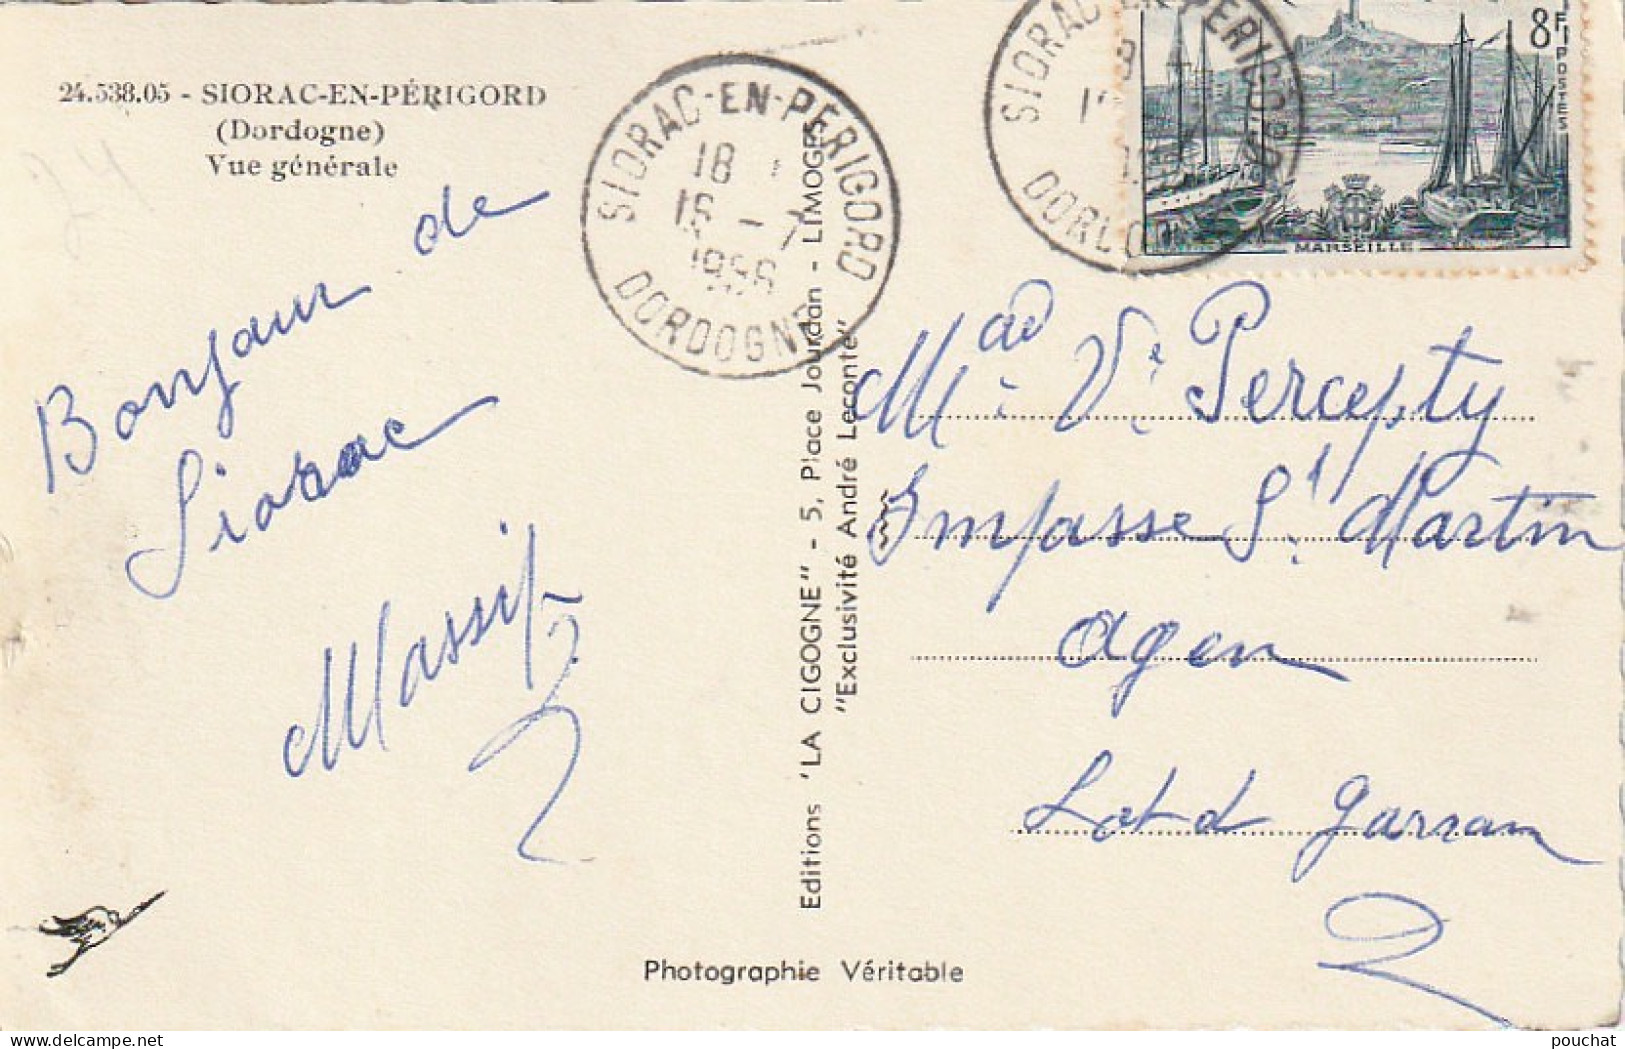 24.538.05 - SIORAC-EN-PÉRIGORD
(Dordogne)
Vue générale
Bonjour de
Siorac
Massip
SIORAC-EN-PERIGORD
18
16 - 7
1956
DORDOGNE
SIORAC-EN-PERIGORD
8F
POSTES
MARSEILLE
Editions "LA CIGOGNE" - 5, Place Jourdan - LIMOGES
"Exclusivité André Leconte"
Mad Ve Percepty
Impasse St Martin
Agen
Lot et Garonne
Photographie Véritable
pouchat